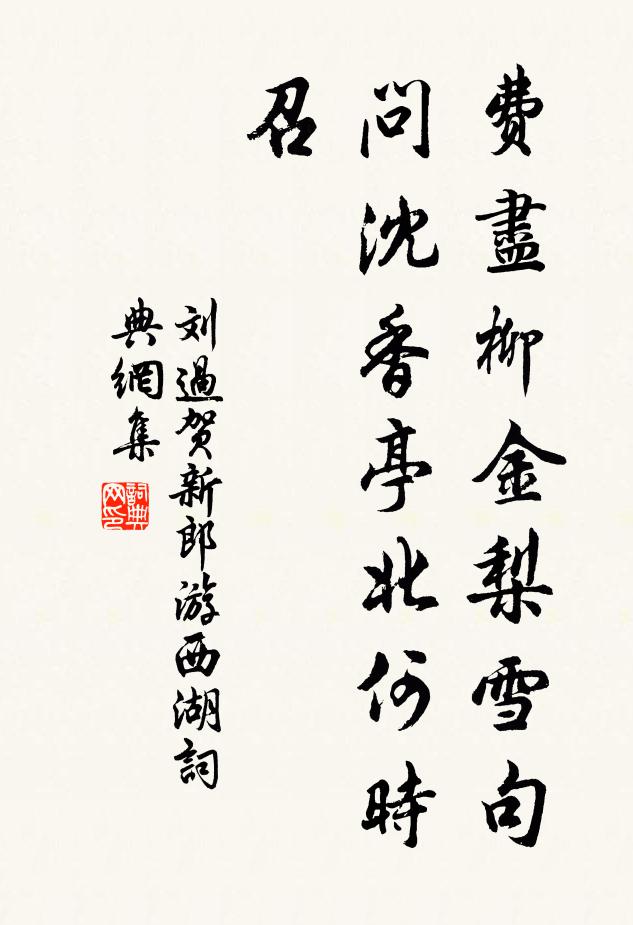 費盡柳金梨雪句
問沈香亭北何時
召
刘過賀新郎游西湖詞
典網集
詞典
网印